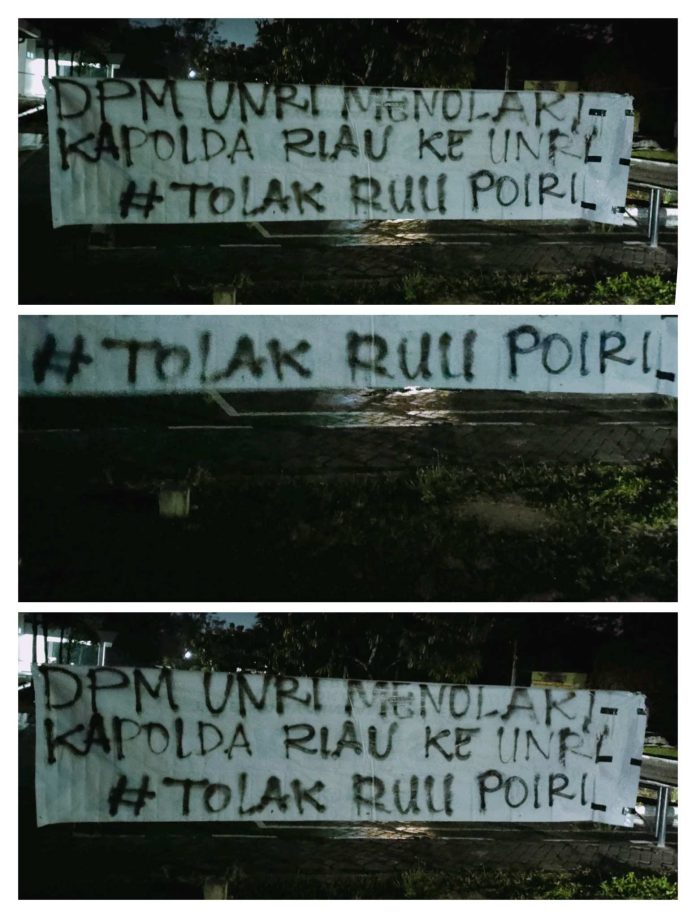 DPM UNRI MENOLAK!
KAPOLDA RIAU KE UNRI
#TOLAK RUU POLRI
#TOLAK RUU POLRI
DPM UNRI MENOLAK!
KAPOLDA RIAU KE UNRI
#TOLAK RUU POLRI